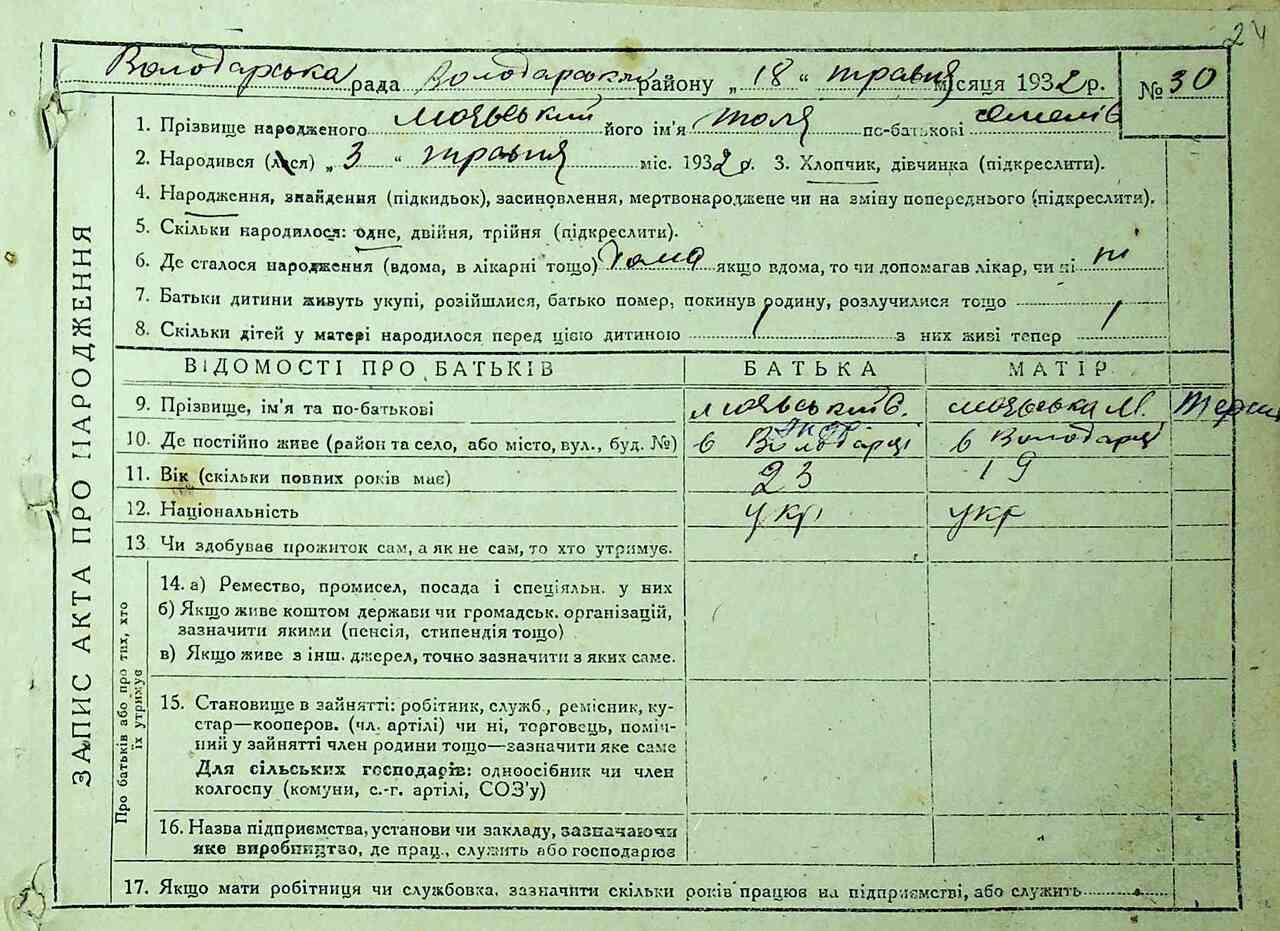 24
Володарська рада Володарський району „ 18 “ травня місяця 1932 р. № 30
1. Прізвище народженого його ім'я Толя по-батькові Семенів
2. Народився (лася) „ 3 “ травня міс. 1932 р. 3. Хлопчик, дівчинка (підкреслити).
4. Народження, знайдення (підкидьок), засиновлення, мертвонароджене чи на зміну попереднього (підкреслити).
5. Скільки народилося: одне, двійня, трійня (підкреслити).
6. Де сталося народження (вдома, в лікарні тощо) якщо вдома, то чи допомагав лікар, чи ні ні
7. Батьки дитини живуть укупі, розійшлися, батько помер, покинув родину, розлучилися тощо
8. Скільки дітей у матері народилося перед цією дитиною з них живі тепер
ВІДОМОСТІ ПРО БАТЬКІВ БАТЬКА МАТІР
9. Прізвище, ім'я та по-батькові
10. Де постійно живе (район та село, або місто, вул., буд. №) в Володарці в Володарці
11. Вік (скільки повних років має) 23 19
12. Національність укр укр
13 Чи здобував прожиток сам, а як не сам, то хто утримує.
ЗАПИС АКТА ПРО НАРОДЖЕННЯ
Про батьків або про тих, хто
їх утримує
14. а) Ремество, промисел, посада і спеціяльн. у них
б) Якщо живе коштом держави чи громадськ. організацій,
зазначити якими (пенсія, стипендія тощо)
в) Якщо живе з інш. джерел, точно зазначити з яких саме.
15. Становище в зайнятті: робітник, служб., ремісник, ку-
стар—кооперов. (чл. артілі) чи ні, торговець, поміч-
ний у зайнятті член родини тощо—зазначити яке саме
Для сільських господарів: одноосібник чи член
колгоспу (комуни, с.-г. артілі, СОЗ'у)
16. Назва підприємства, установи чи закладу, зазначаючи
яке виробництво, де прац., служить або господарює
17. Якщо мати робітниця чи службовка, зазначити скільки років працює на підприємстві, або служить